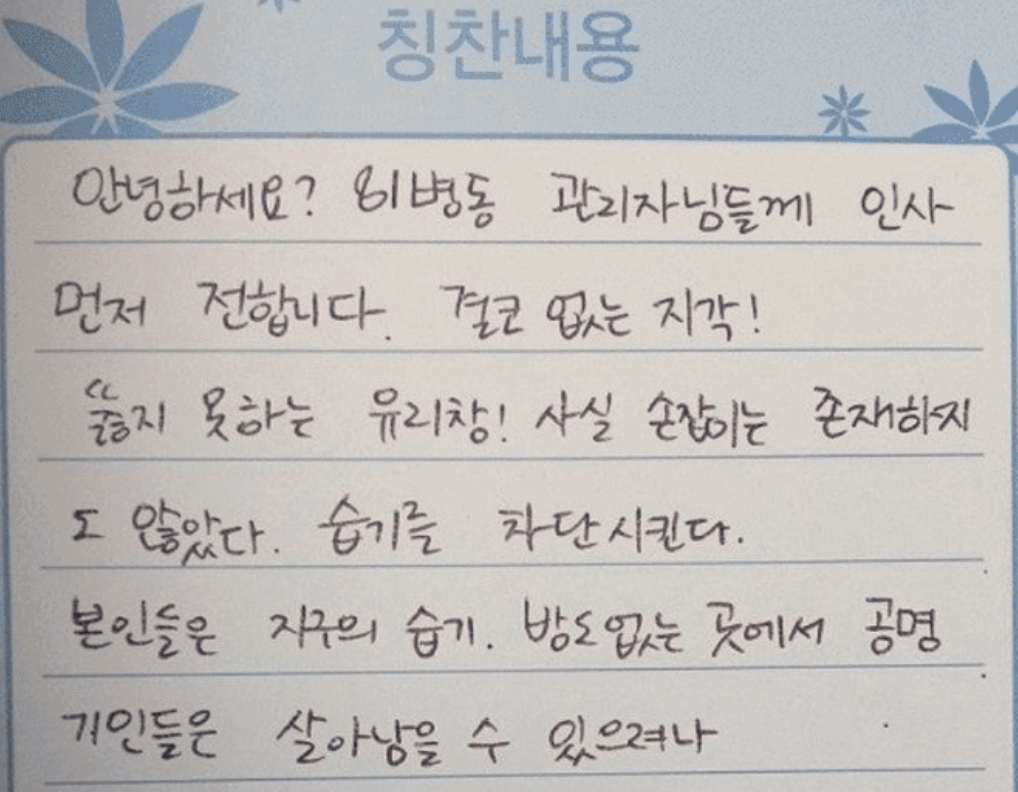 칭찬내용
안녕하세요? 81병동 관리자님들께 인사
먼저 전합니다. 결코 없는 지각!
뚫지 못하는 유리창! 사실 손잡이는 존재하지
도 않았다. 습기를 차단시킨다.
본인들은 지구의 습기. 방도없는 곳에서 공명
기인들은 살아남을 수 있으려나